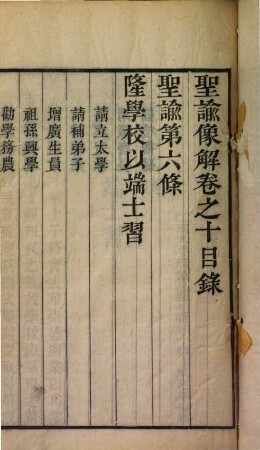 聖諭像解卷之十目錄
聖諭第六條
隆學校以端士習
請立太學
請補弟子
增廣生員
祖孫興學
勸學務農